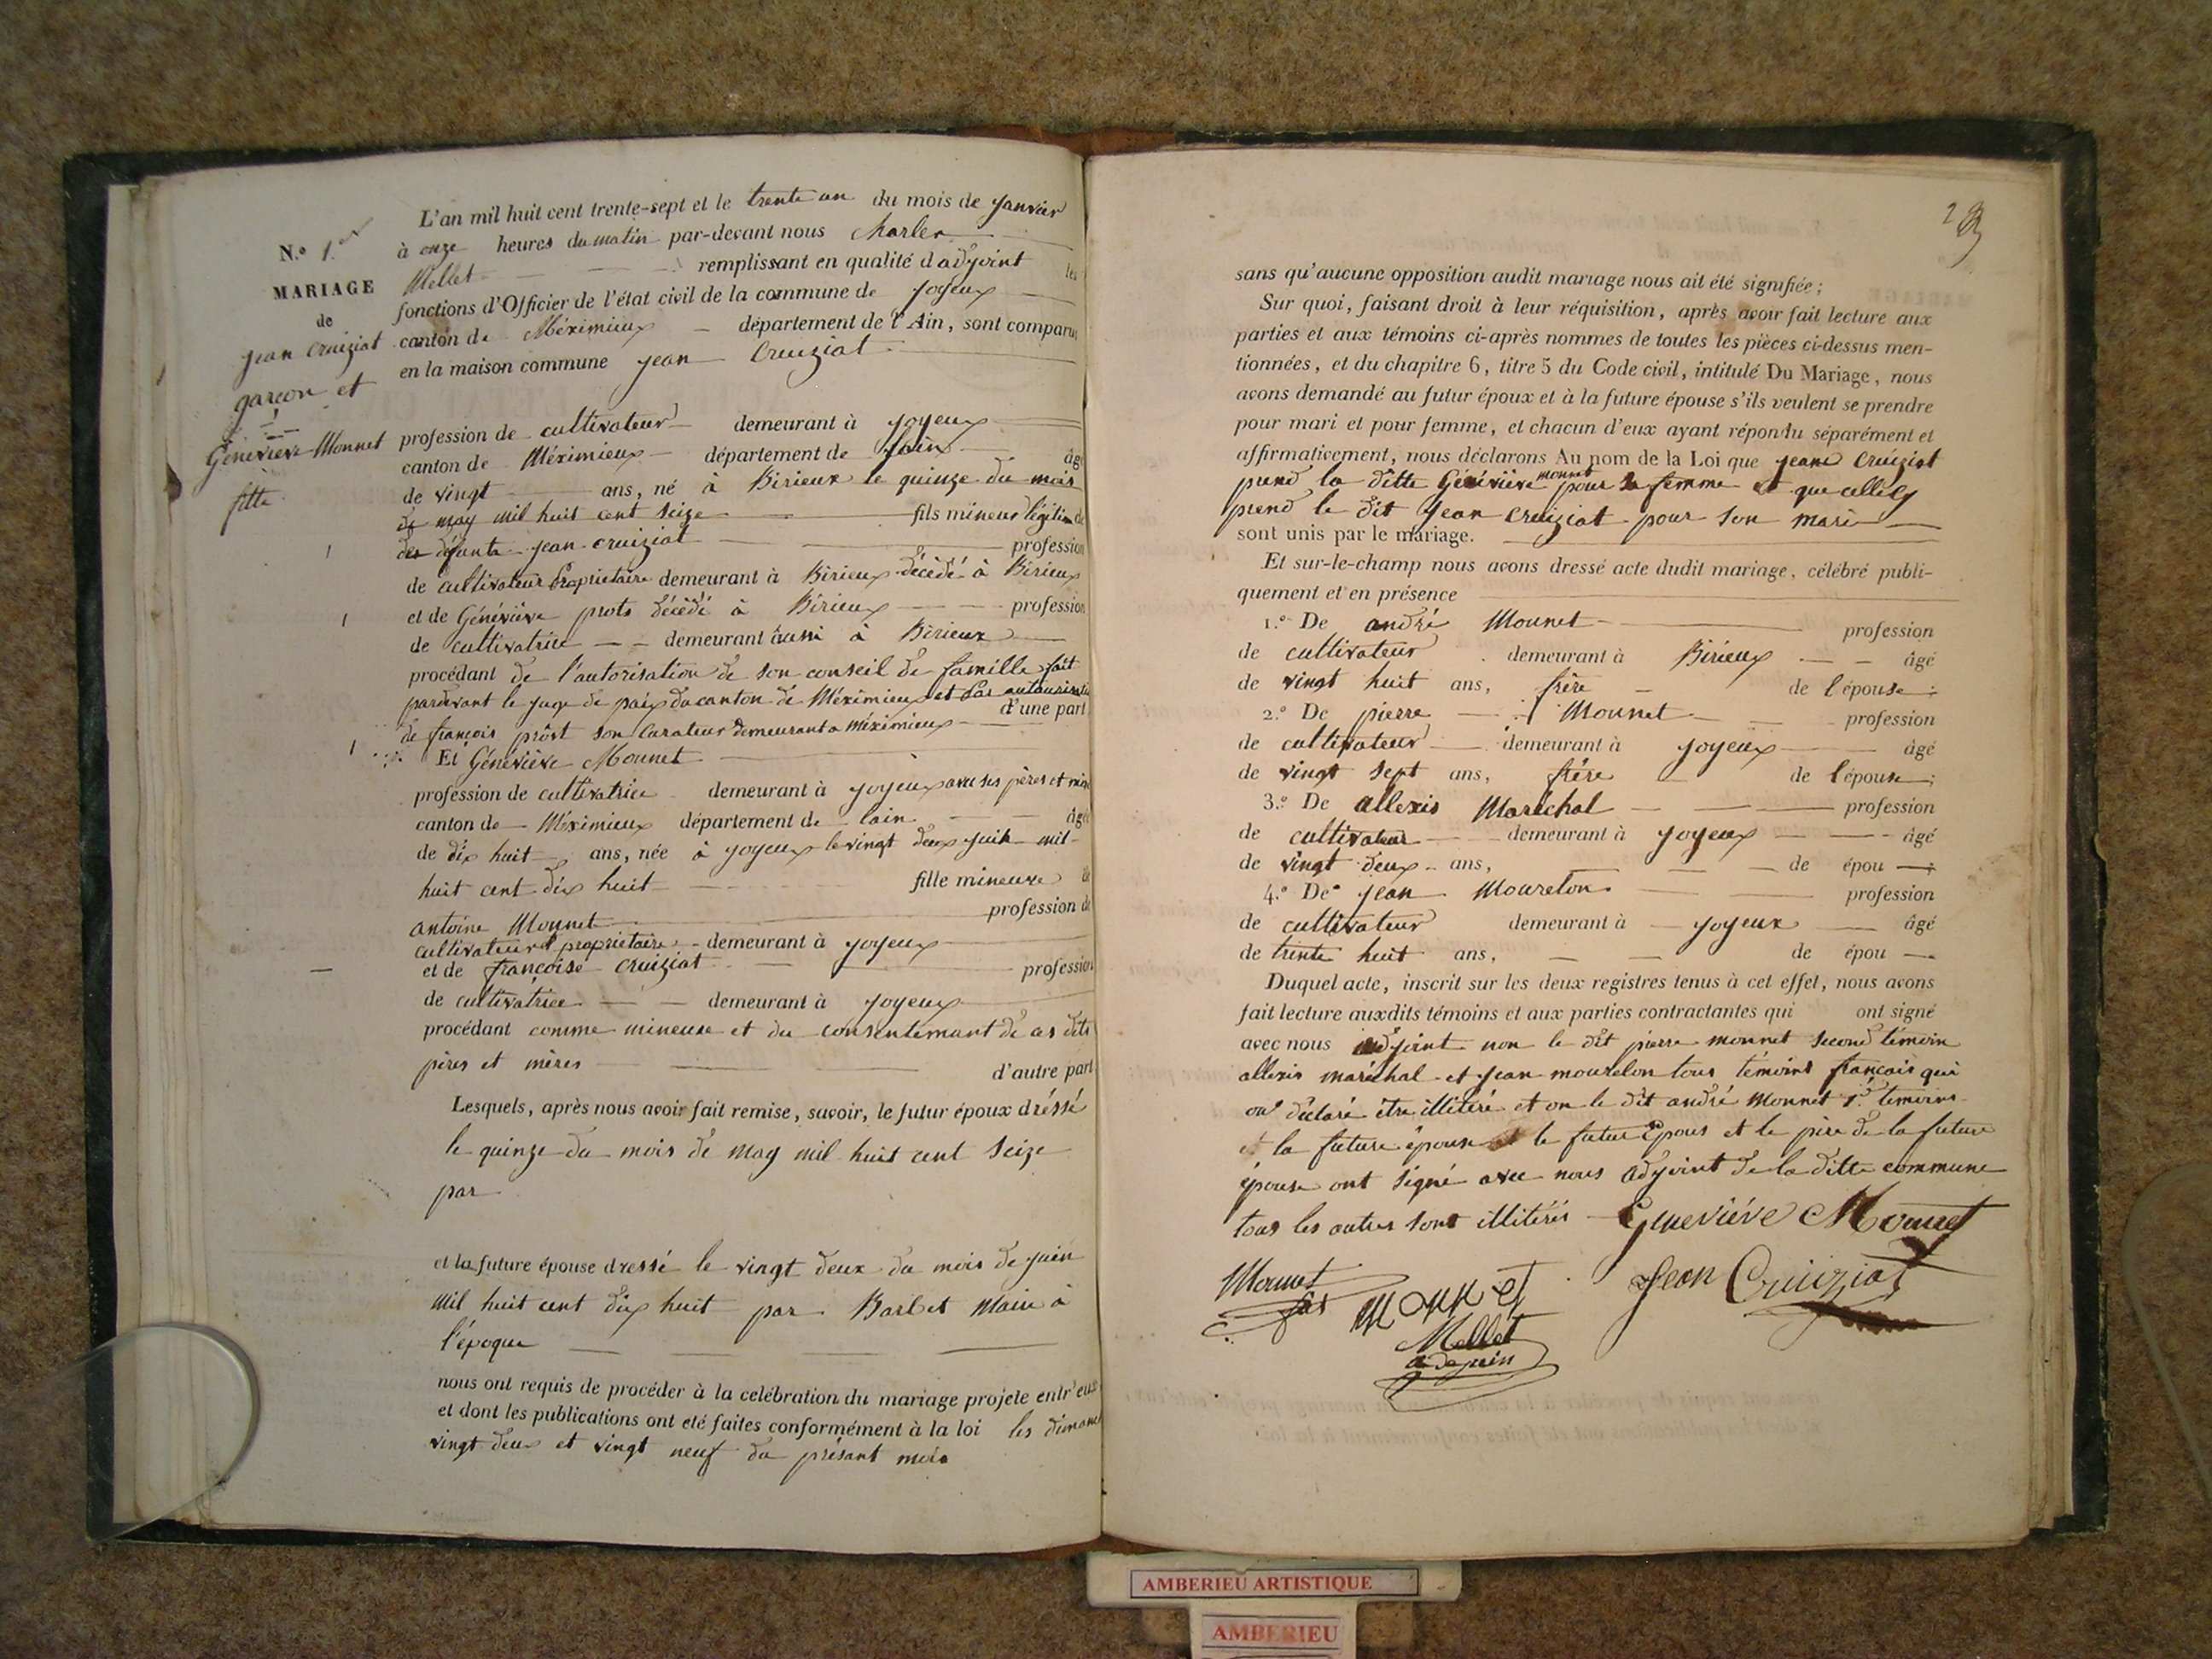 N.o 1.er
MARIAGE
de
jean Cruiziat
garçon et
Généviève Monnet
fille
L'an mil huit cent trente-sept et le trente un du mois de janvier
à onze heures du matin par-devant nous Charles
Mellet remplissant en qualité d'adjoint les
fonctions d'Officier de l'état civil de la commune de joyeux
canton de Méximieux département de l'Ain, sont comparus
en la maison commune jean Cruiziat
profession de cultivateur demeurant à joyeux
canton de Méximieux département de lain âgé
de vingt ans, né à Birieux le quinze du mois
de may mil huit cent seize fils mineur légitime de
des défunts jean cruiziat profession
de cultivateur Proprietaire demeurant à Birieux décédé à Birieux
et de Généviève prots décédé à Birieux profession
de cultivatrice demeurant aussi à Birieux
procédant de l'autorisation de son conseil de famille fait
pardevant le juge de paix du canton de Méximieux et Par autaurisation
d'une part
de françois prôst son Curateur demeurant a méximieux
Et Généviève Monnet
profession de cultivatrice demeurant à joyeux avec ses pères et mère
canton de Méximieux département de lain âgée
de dix huit ans, née à joyeux le vingt deux juin mil
huit cent dix huit fille mineure de
antoine Monnet profession de
cultivateur et proprietaire demeurant à joyeux
et de françoise cruiziat profession
de cultivatrice demeurant à joyeux
procédant comme mineure et du consentemant de ces dits
pères et mères d'autre part
Lesquels, après nous avoir fait remise, savoir, le futur époux dréssé
le quinze du mois de may mil huit cent seize
par
et la future épouse dressé le vingt deux du mois de juin
mil huit cent dix huit par Barbet Maire à
l'époque
nous ont requis de procéder à la celébration du mariage projeté entr'eux
et dont les publications ont été faites conformément à la loi les dimanch
vingt deux et vingt neuf du présant mois
sans qu'aucune opposition audit mariage nous ait été signifiée;
Sur quoi, faisant droit à leur réquisition, après avoir fait lecture aux
parties et aux témoins ci-après nommés de toutes les pièces ci-dessus men-
tionnées, et du chapitre 6, titre 5 du Code civil, intitulé Du Mariage, nous
avons demandé au futur époux et à la future épouse s'ils veulent se prendre
pour mari et pour femme, et chacun d'eux ayant répondu séparément et
affirmativement, nous déclarons Au nom de la Loi que jean Cruiziat
prend la ditte Généviève monnet pour sa femme et que celle cy
prend le dit jean cruiziat pour son mari
sont unis par le mariage.
Et sur-le-champ nous avons dressé acte dudit mariage, célébré publi-
quement et en présence
1.o De andré Monnet profession
de cultivateur demeurant à Birieux âgé
de vingt huit ans, frère de l'épouse;
2.o De pierre Monnet profession
de cultivateur demeurant à joyeux âgé
de vingt sept ans, frère de l'épouse;
3.o De allexis Maréchal profession
de cultivateur demeurant à joyeux âgé
de vingt deux ans, de épou ;
4.o De jean Mourelon profession
de cultivateur demeurant à joyeux âgé
de trente huit ans, de épou
Duquel acte, inscrit sur les deux registres tenus à cet effet, nous avons
fait lecture auxdits témoins et aux parties contractantes qui ont signé
avec nous adjoint non le dit pierre monnet second témoin
allexis maréchal et jean mourelon tous témoins français qui
ont déclaré être illitéré et on le dit andré Monnet 1er temoins
et la future épouse et le futur Epoux et le père de la future
épouse ont signé avec nous adjoint de la ditte commune
tous les autres sont illitérés Geneviéve Monnet
Monnet Jean Cruiziat
fils monnet
Mellet
adejoin
AMBERIEU ARTISTIQUE
AMBERIEU